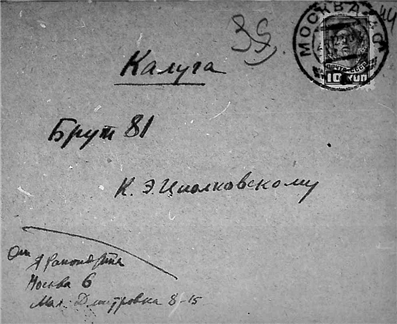 МОСКВА
10 КОП
Калуга
Брут 81
К. Э. Циолковскому
От
Москва 6
Мал. Дмитровка 8-15